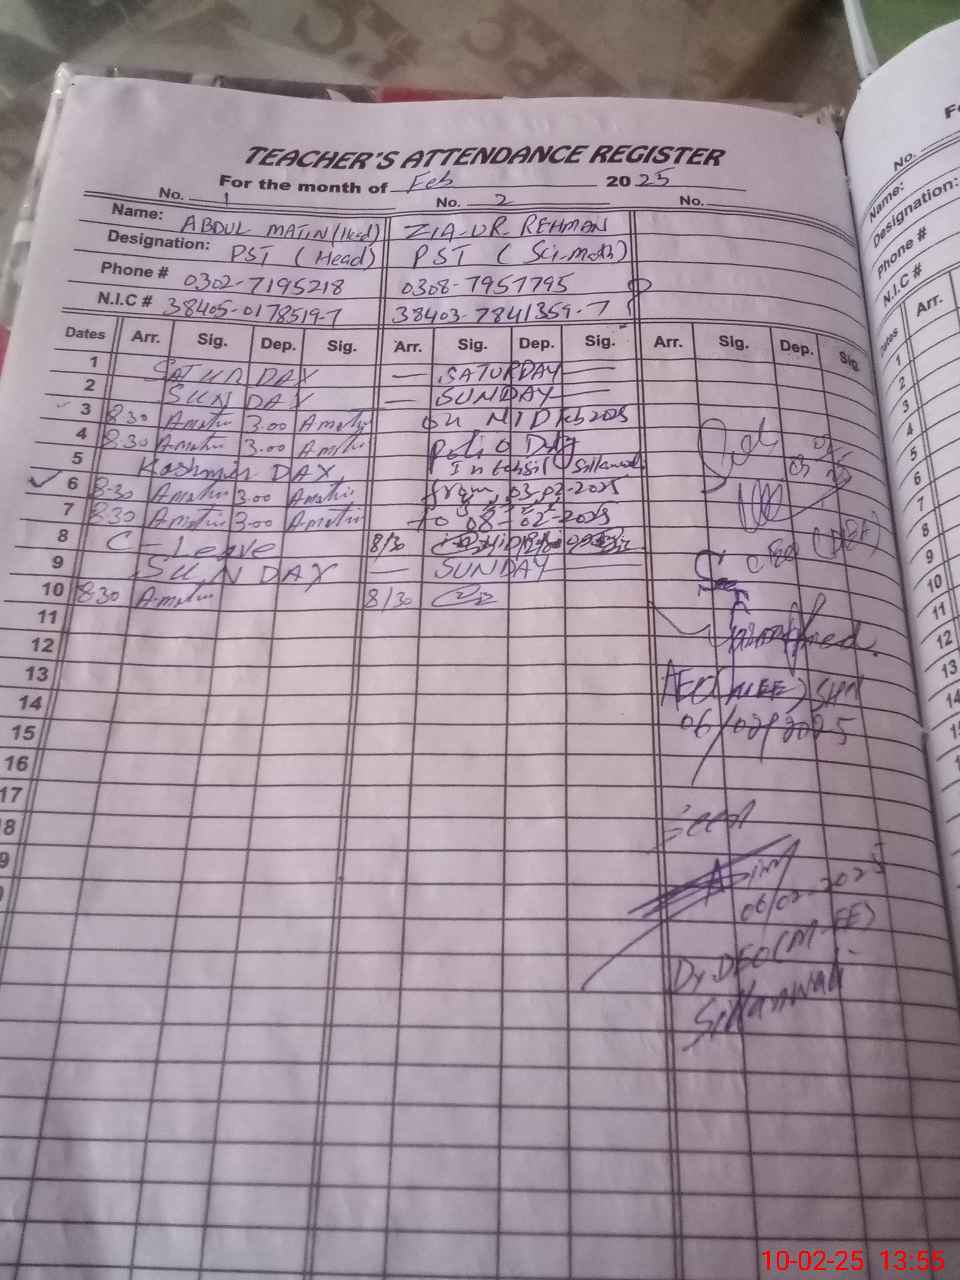 TEACHER'S ATTENDANCE REGISTER
For the month of Feb 2025
No. 1 No. 2 No.
Name: ABDUL MATIN (Head) ZIA-UR-REHMAN
Designation: PST (Head) PST (Sci-Math)
Phone # 0302-7195218 0308-7957795
N.I.C # 38405-0178519-7 38403-7841359-7
Dates Arr. Sig. Dep. Sig. Arr. Sig. Dep. Sig. Arr. Sig. Dep. Sig.
1 SATUR DAY — SATURDAY —
2 SUN DAY — SUNDAY —
3 8:30 Amatin 3.00 Amatin on NID Feb 2025
4 8:30 Amatin 3.00 Amatin Polio Day
5 Kashmir DAY In tehsil Sillanwali
6 8-30 Amatin 3.00 Amatin from 03-02-2025
7 8:30 Amatin 3.00 Amatin to 08-02-2025
8 C-Leave 8/30
9 SUN DAY — SUNDAY
10 8:30 Amatin 8/30
11
12
13
14
15
16
17
18
19
AEO (M-EE) SLN
06/02/2025
Seen
06/02-2025
Dy. DEO (M-EE)
Sillanwali
No.
Name:
Designation:
Phone #
N.I.C #
Dates Arr.
1
2
3
4
5
6
7
8
9
10
11
12
13
14
15
10-02-25 13:55